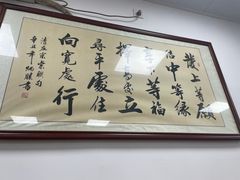 發上等願
结中等缘
享下等福
擇高處立
尋平處住
向寬處行
清左宗棠联句
辛丑年 書